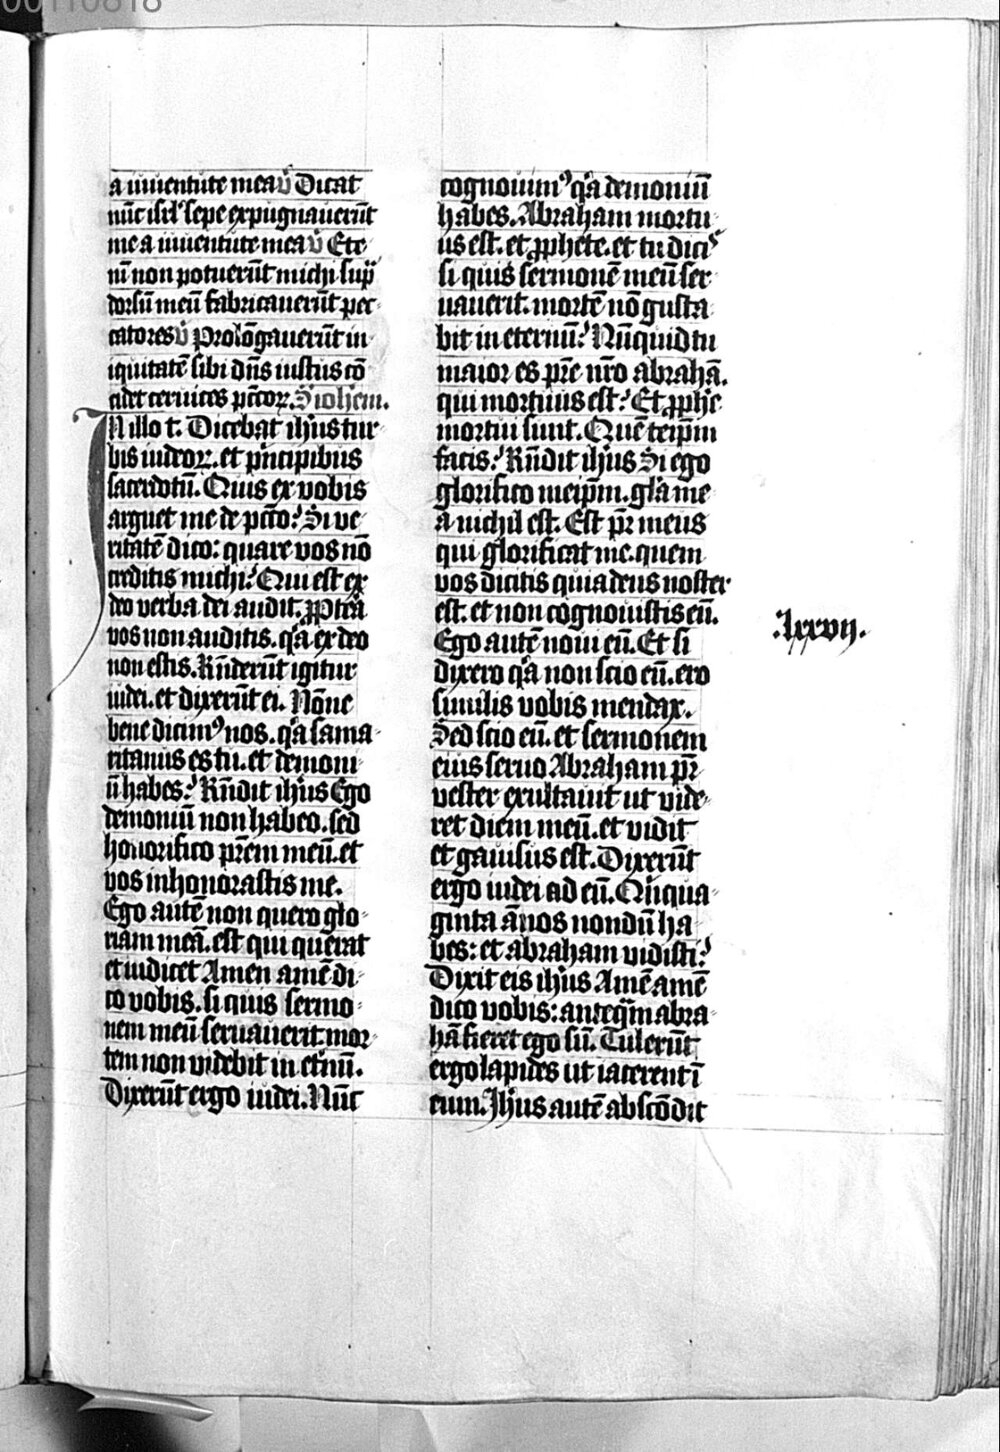 00110818
a iuuentute mea v̄ Dicat
nūc isrl' sepe expugnauerūt
me a iuuentute mea v̄ Ete
nī non potuerūt michi sup̄
dorsū meū fabricauerūt pec
catores v̄ Prolōgauerūt in
iquitatē sibi dn̄s iustus cō
cidet ceruices pcc̄oꝝ. S̄ iohem.
IN illo t. Dicebat ih̄us tur
bis iudeoꝝ. et pͥncipibus
sacerdotū. Quis ex vobis
arguet me de pcc̄o? Si ve
ritatē dico: quare vos nō
creditis michi? Qui est ex
deo verba dei audit. ꝓpterea
vos non auditis. qͥa ex deo
non estis. Rn̄derūt igitur
iudei. et dixerūt ei. Nōne
bene dicimꝰ nos. qͥa sama-
ritanus es tu. et demoni-
ū habes? Rn̄dit ih̄us Ego
demoniū non habeo. sed
honorifico pr̄em meū. et
vos inhonorastis me.
Ego autē non quero glo-
riam meā. est qui querat
et iudicet Amen amē di-
co vobis. si quis sermo-
nem meū seruauerit. mor-
tem non videbit in et̄nū.
Dixerūt ergo iudei. Nūc
cognouimꝰ qͥa demoniū
habes. Abraham mortu-
us est. et ꝓphete. et tu dicis
si quis sermonē meū ser-
uauerit. mortē nō gusta-
bit in eternū? Nūquid tu
maior es pr̄e nr̄o abrahā.
qui mortuus est? Et ꝓphe
mortui sunt. Quē teip̄m
facis? Rn̄dit ih̄us Si ego
glorifico meip̄m. gl̄a me-
a nichil est. Est pr̄ meus
qui glorificat me. quem
vos dicitis quia deus noster
est. et non cognouistis eū.
Ego autē noui eū. Et si
dixero qͥa non scio eū. ero
similis vobis mendax.
Sed scio eū. et sermonem
eius seruo Abraham pr̄
vester exultauit ut vide-
ret diem meū. et vidit
et gauisus est. Dixerūt
ergo iudei ad eū. Qͥnqua-
ginta ānos nondū ha
bes: et abraham vidisti?
Dixit eis ih̄us Amē amē
dico vobis: anteqͣm abra-
hā fieret ego sū. Tulerūt
ergo lapides ut iacerent ī
eum. Ih̄us autē abscōdit
.lxxvij.